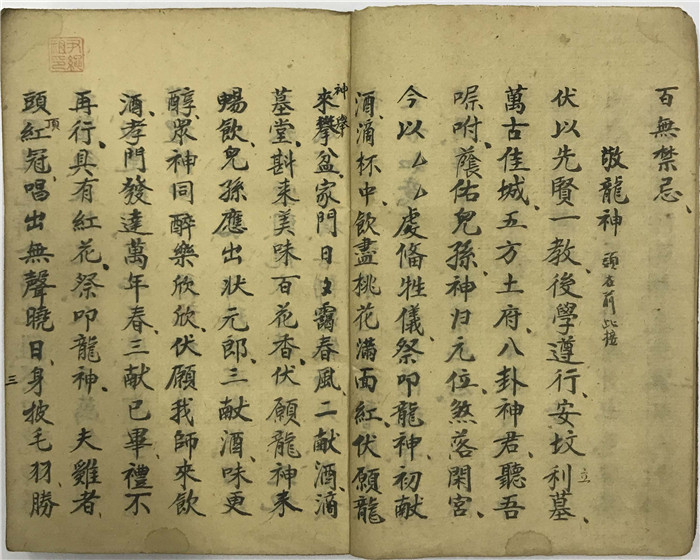 百無禁忌、
敬龍神 頭在前此接
伏以先賢一教、後學遵行、安坟利墓、立
萬古佳城、五方土府、八卦神君、聽吾
㗒咐、蔭佑兒孫、神归元位、煞落閑宮、
今以厶厶處俻牲儀、祭叩龍神、初献
酒、滴杯中、飲盡桃花滿面紅、伏願龍
神來攀盆、家門日日靄春風、二献酒、滴
墓堂、斟来美味百花香、伏願龍神来
暢飲、兒孫應出状元郎、三献酒、味更
醇、眾神同醉樂欣欣、伏願我師來飲
酒、孝門發達萬年春、三献已畢、禮不
再行、具有紅花、祭叩龍神、夫雞者、
頭頂紅冠、唱出無聲曉日、身披毛羽、勝
三